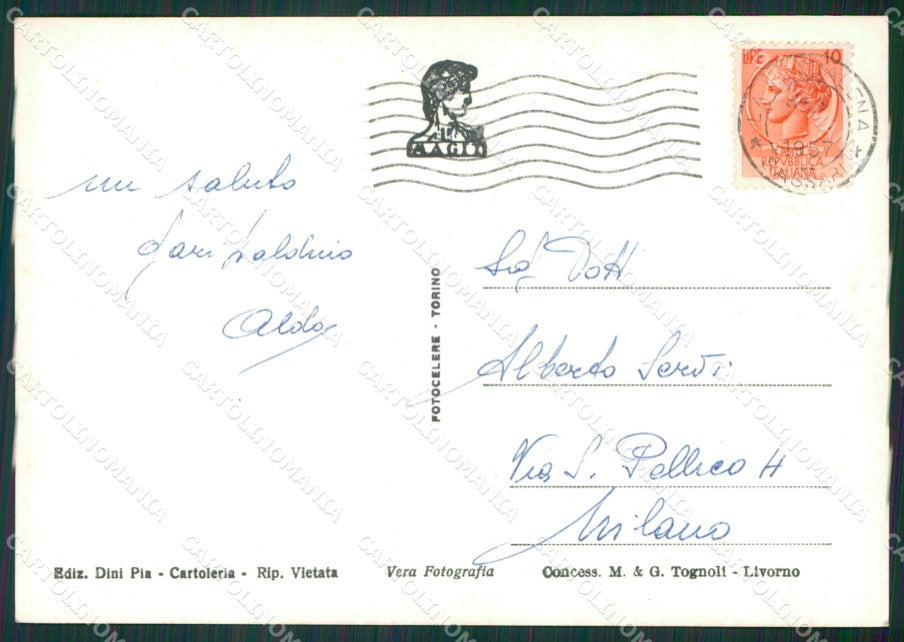 LIRE 10
1957
REPVBBLICA
ITALIANA
un saluto
garibaldino
Aldo
Dott
Alberto
Via S. Pellico 4
Milano
FOTOCELERE - TORINO
Ediz. Dini Pia - Cartoleria - Rip. Vietata
Vera Fotografia
Concess. M. & G. Tognoli - Livorno
CARTOLINOMANIA